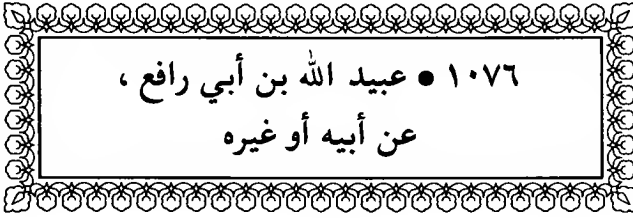 ١٠٧٦ ● عبيد الله بن أبي رافع ،
عن أبيه أو غيره